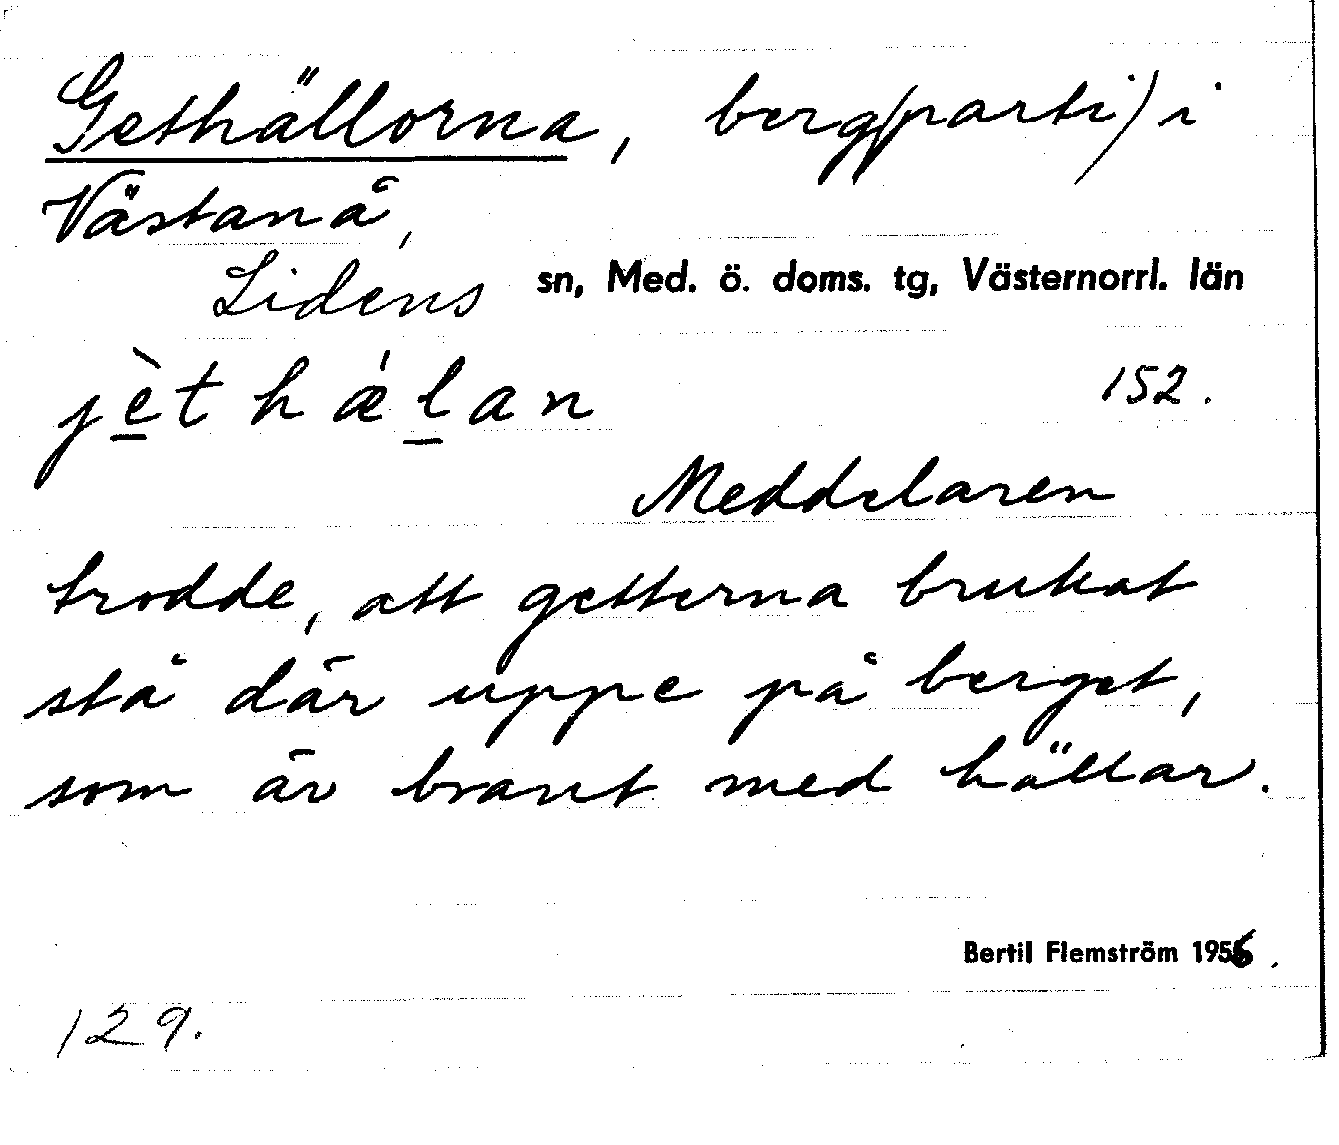 Gethällorna, berg(parti) i
Västanå,
Lidens sn, Med. ö. doms. tg, Västernorrl. län
jèt hǽlan 152.
Meddelaren
trodde, att getterna brukat
stå där uppe på berget,
som är brant med hällar.
Bertil Flemström 1956.
129.